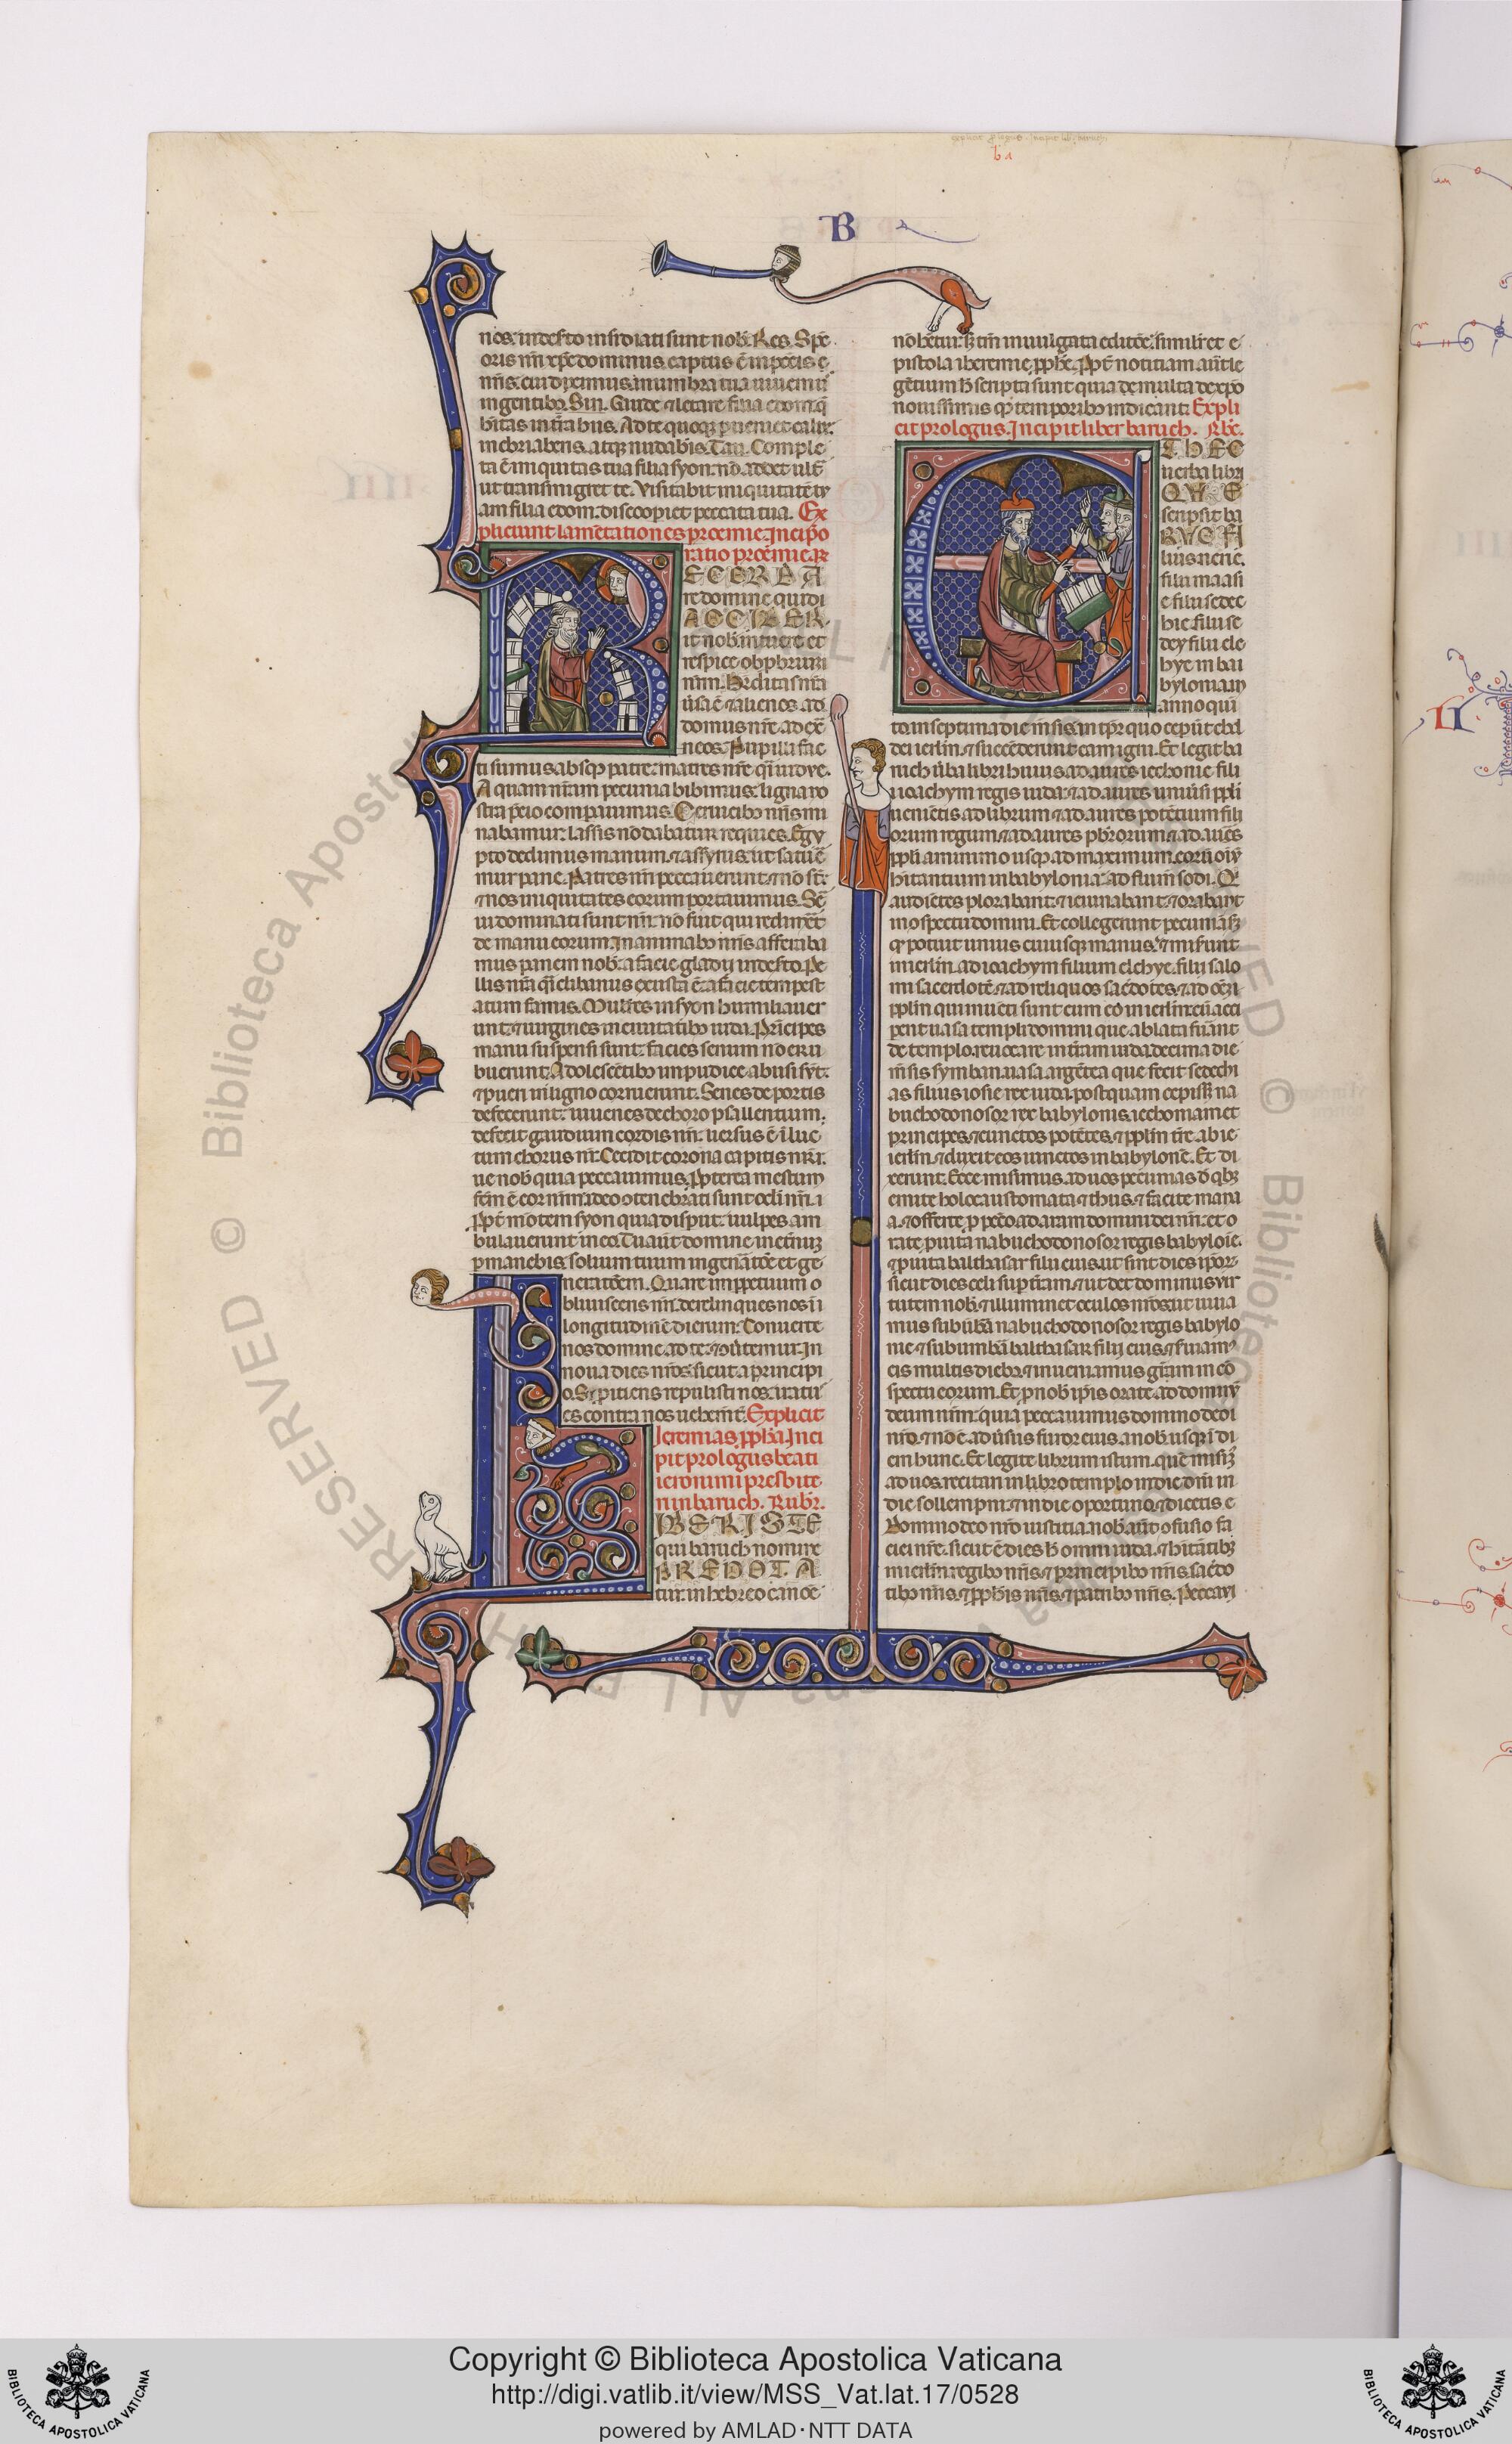 B
nos. in deserto insidiati sunt nob̄. Res. Sp̄c
oris nr̄i xp̄c dominus captus ē in pccīs
nr̄is cui diximus in umbra tua vivem̄
in gentibꝫ. Sin. Gaude ⁊ letare filia edom q̄
habitas in tr̄a hus. Ad te quoqꝫ perveniet calix
inebriaberis atqꝫ nudaberis. Tau. Comple
ta ē iniquitas tua filia syon. nō addet ultr̄
ut transmigret te. Visitabit iniquitatē tu
am filia edom. discooperiet peccata tua. Ex
pliciunt lamētationes ieremie. Incip̄ o
ratio ieremie. R̄
RECORDA
re domine quidi
ACCIDER
it nob̄. intuere et
respice obp̄brium
nr̄m. Hereditas nr̄a
v̄sa ē ad alienos.
domus nr̄e ad ex̄
neos. Pupilli fac
ti sumus absqꝫ patre. matres nr̄e q̄i vidue.
Aquam nr̄am pecunia bibimus. ligna no
stra p̄cio comparavimus. Cervicibꝫ nr̄is mi
nabamur. lassis nō dabatur requies. Egy
pto dedimus manum. ⁊ assyriis ut saturē
mur pane. Patres nr̄i peccaverunt ⁊ nō st̄.
⁊ nos iniquitates eorum portavimus. Ser
vi dominati sunt nr̄i. nō fuit qui redimēt
de manu eorum. In animabꝫ nr̄is afferaba
mus panem nob̄. a facie gladii in deserto. Pe
llis nr̄a q̄i clibanus exusta ē. a facie tempest
atum famis. Mulieres in syon humiliaver
unt. ⁊ virgines in civitatibꝫ iuda. Principes
manu suspensi sunt. facies senum nō eru
buerunt. Adolescētibꝫ impudice abusi sunt.
⁊ pueri in ligno corruerunt. Senes de portis
defecerunt. iuvenes de choro psallentium.
defecit gaudium cordis nr̄i. versus ē ī luc
tum chorus nr̄. Cecidit corona capitis nr̄i.
ve nob̄ quia peccavimus. Propterea mestum
fcm̄ ē cor nr̄m. ideo ꝯtenebrati sunt ocli nr̄i.
ppt̄ mōtem syon quia disp̄iit. vulpes am
bulaverunt in eo. Tu aut̄ domine in eternum
p̄manebis. solium tuum in gen̄atōe et ge
neratōem. Quare in ppetuum o
blivisceris nr̄i. derelinques nos ī
longitudinē dierum. Converte
nos domine ad te. ⁊ cōvtemur. In
nova dies nr̄os. sicut a principi
o. S; piciens repulisti nos. iratu
es contra nos vehemt̄. Explicit
Ieremias ppha. Inci
pit prologus beati
ieronimi presbite
ri in baruch. Rubr̄.
LIBER ISTE
qui baruch nomine
PRENOTA
tur. in hebreo canōe
nō betur. s; tm̄ in vulgata editōe. similiter e
pistola iheremie pphe. Ppt̄ notitiam aut̄ le
gētium h̄ scripta sunt quia de multa de xp̄o
novissimis qꝫ temporibꝫ indicant. Expli
cit prologus. Incipit liber baruch. Rbc̄.
ET HEC
verba libri
QVE
scripsit ba
RVC FI
lius nerie.
filii maasi
e filii sedec
hie filii se
dey filii ele
hye in bai
byloniam
anno qui
to. in septima die mēsis. in tp̄r quo cepūt chal
dei ierl̄m. ⁊ succēderunt eam igni. Et legit ba
ruch v̄ba libri huius ad aures iechonie filii
ioachym regis iuda. ⁊ ad aures univ̄si ppli
venientis ad librum. ⁊ ad aures potētium fili
orum regum. ⁊ ad aures pbr̄orum. ⁊ ad aures
ppli a minimo usqꝫ ad maximum eorum oiūm
hītantium in babylonia ad flumen sodi. Q̄
audiētes plorabant. ⁊ ieiunabant. ⁊ orabant
in ꝯspectu domini. Et collegerunt pecuniā s;
q̄ potuit uniuscuiusqꝫ manus. ⁊ miserunt
in ierl̄m ad ioachym filium elchye. filii salo
mi sacerdotē. ⁊ ad reliquos sac̄dotes. ⁊ ad om̄ē
pplm̄ qui invēti sunt cum eo in ierl̄m. cū acci
perent vasa templi domini que ablata fuerant
de templo. revocare in tr̄am iuda decima die
mēsis symban. vasa argētea que fecit sedechi
as filius iosie rex iuda. postquam cepiss; na
buchodonosor rex babylonis iechoniam et
principes. ⁊ cunctos potētes. ⁊ pplm̄ tr̄e ab ie
ierl̄m. ⁊ duxit eos vinctos in babylonē. Et di
xerunt. Ecce misimus ad vos pecunias d̄ qbꝫ
emite holocaustomata ⁊ thus. ⁊ facite mana
a. ⁊ offerte p pctō ad aram domini dei nr̄i. et o
rate p vita nabuchodonosor regis babyloie.
⁊ p vita balthasar filii eius. ut sint dies ip̄or
sicut dies celi sup tr̄am. ⁊ ut det dominus vir
tutem nob̄. ⁊ illuminet oculos nr̄os. ut viva
mus sub ūbra nabuchodonosor regis babylo
nie. ⁊ sub umbā balthasar filii eius. ⁊ serviam̄
eis multis diebꝫ. ⁊ inveniamus gr̄am in cō
spectu eorum. Et p nob̄ ip̄is orate ad dominū
deum nr̄m. quia peccavimus domino deo
nr̄o. ⁊ nō ē adv̄sus furor eius a nob̄. usqꝫ ī di
em hunc. Et legite librum istum. quē misim̄
ad vos recitari in libro templo in die dn̄i in
die sollempni. ⁊ in die oportuno. ⁊ dicetis.
Domino deo nr̄o iustitia. nob̄ aut̄ ꝯfusio fa
ciei nr̄e. sicut ē dies h̄ omni iuda. ⁊ hītātibꝫ
in ierl̄m. regibꝫ nr̄is. ⁊ principibꝫ nr̄is. sac̄do
tibꝫ nr̄is. ⁊ pphis nr̄is. ⁊ patribꝫ nr̄is. Peccavi
Copyright © Biblioteca Apostolica Vaticana
http://digi.vatlib.it/view/MSS_Vat.lat.17/0528
powered by AMLAD·NTT DATA
BIBLIOTECA APOSTOLICA VATICANA
BIBLIOTECA APOSTOLICA VATICANA